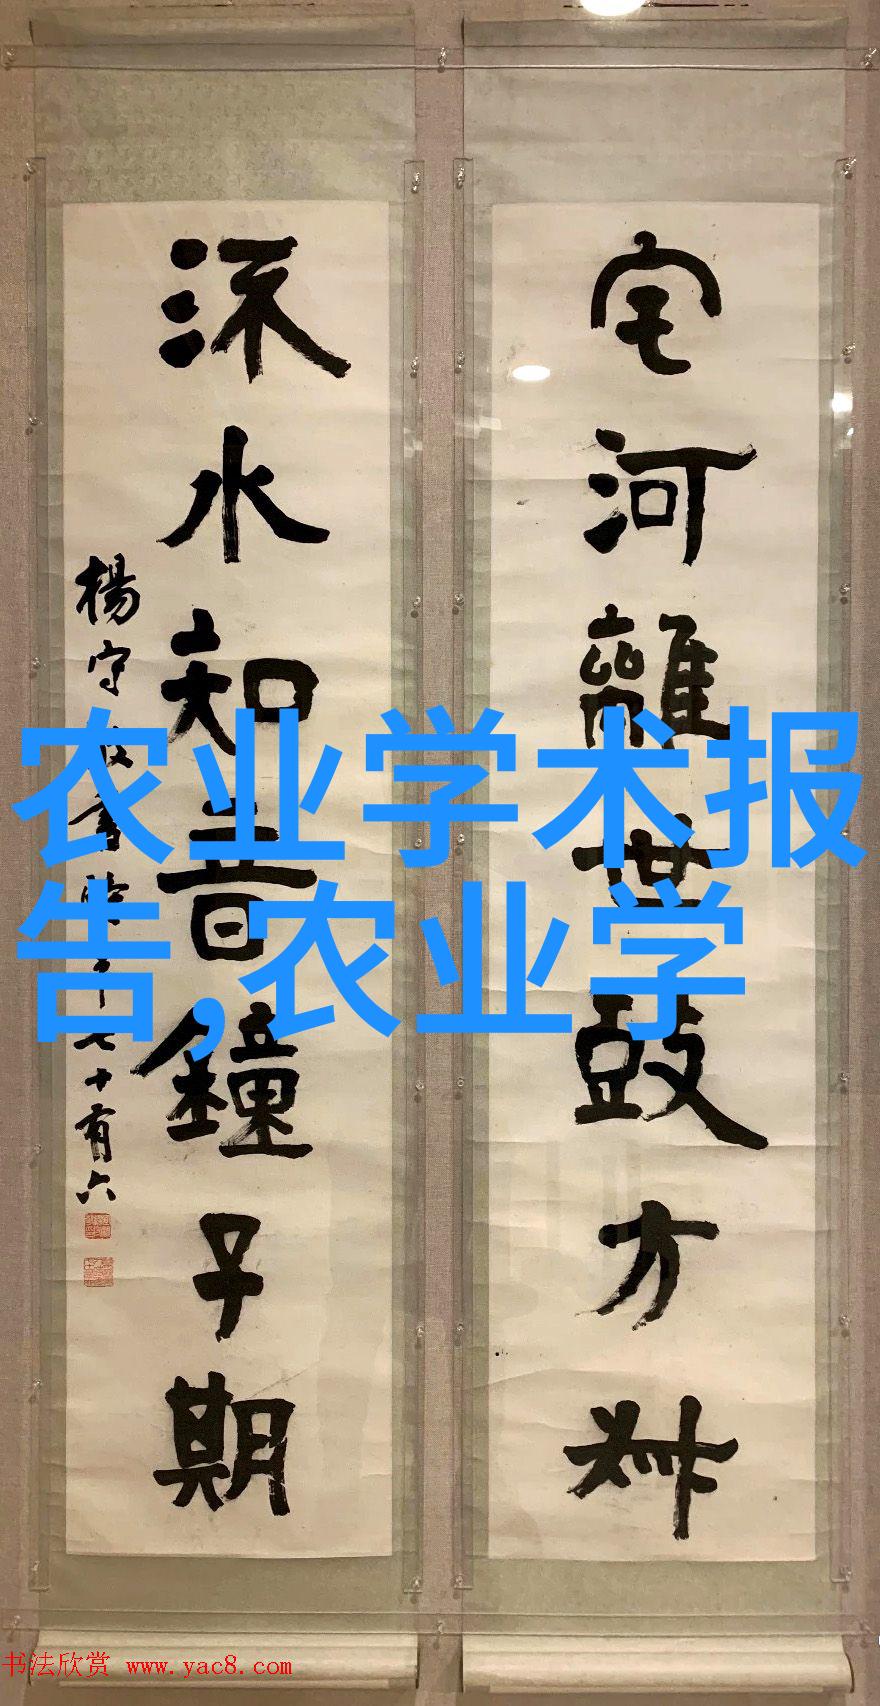 宅河離世鼓方
水知音鐘子期
楊守敬書時年七十有六
农业学术报
告,农业学
书法欣赏 www.yac8.com